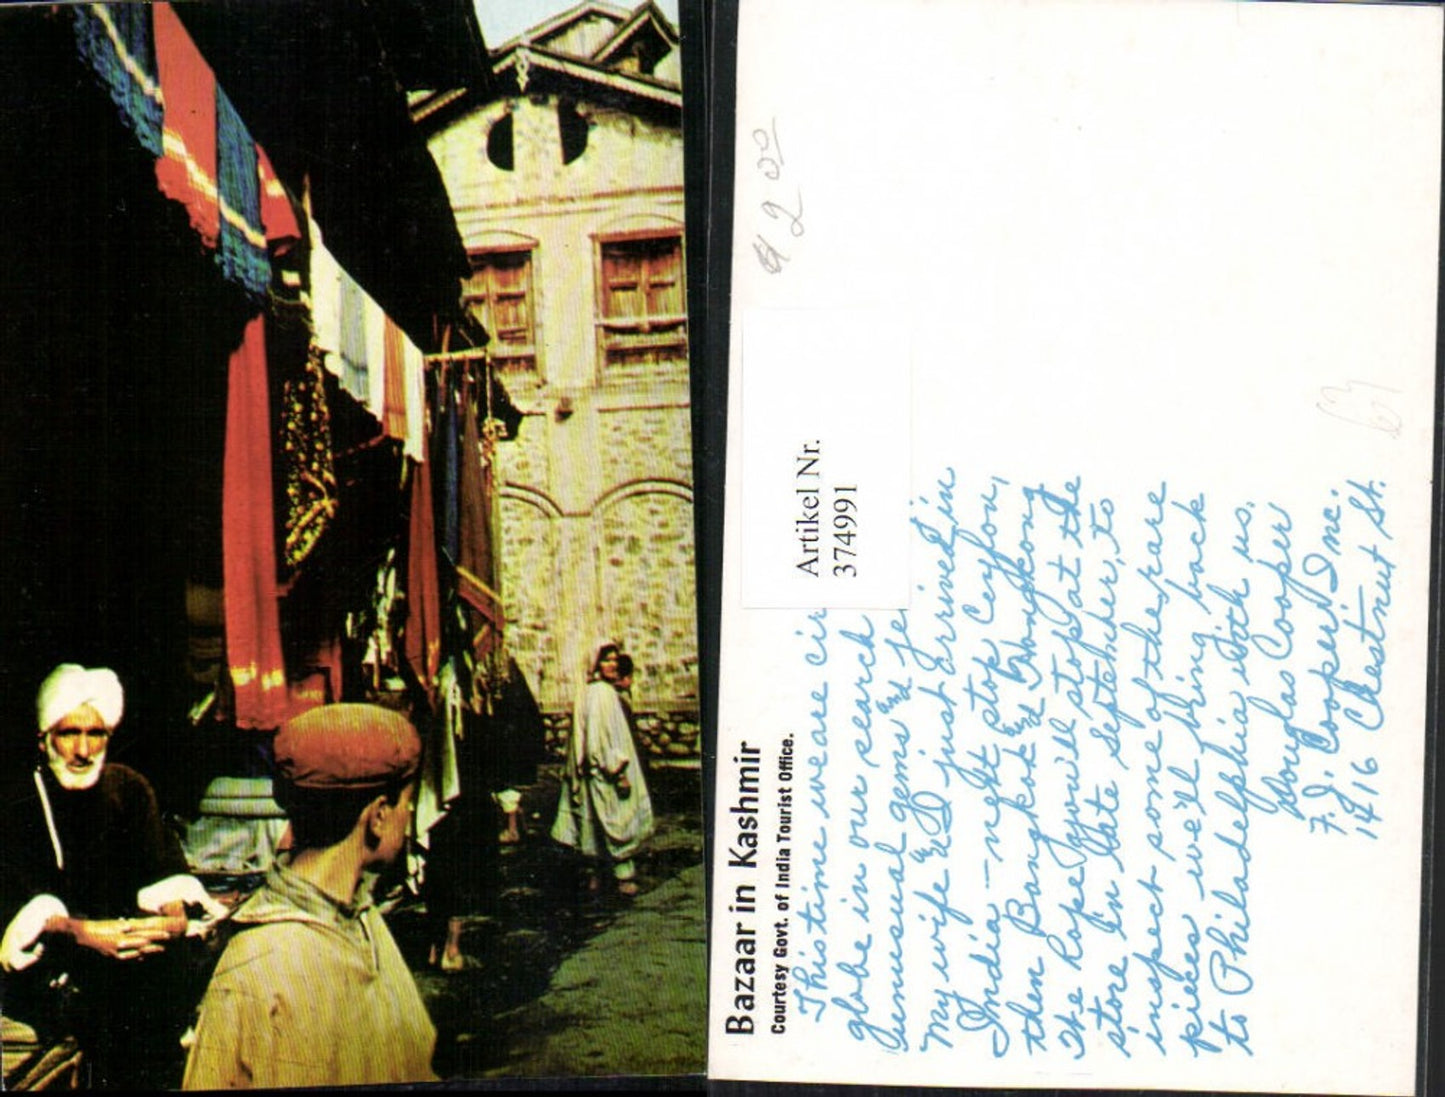 Bazaar in Kashmir
Courtesy Govt. of India Tourist Office.
This time we are cir
globe in our search
unusual gems & je
My wife & I just arrived in
India - next stop Ceylon,
then Bangkok & Hongkong
We hope you'll stop at the
store in late September, to
inspect some of the rare
pieces we'll bring back
to Philadelphia with us.
Douglas Cooper
F. J. Cooper Inc.
1416 Chestnut St.
Artikel Nr.
374991